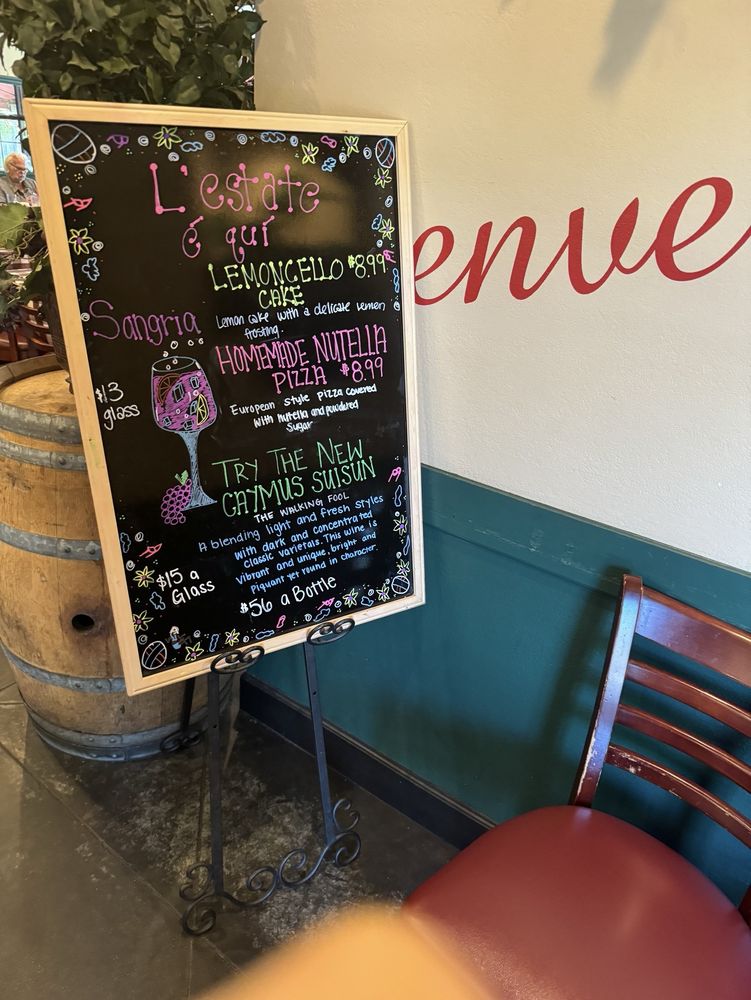 L'estate
é quí
LEMONCELLO $8.99
CAKE
Lemon cake with a delicate lemon
frosting.
Sangria
$13
glass
HOMEMADE NUTELLA
PIZZA $8.99
European style pizza covered
with nutella and powdered
Sugar
TRY THE NEW
CAYMUS SUISUN
THE WALKING FOOL
A blending light and fresh styles
with dark and concentrated
classic varietals. This wine is
vibrant and unique, bright and
piquant yet round in character.
$15 a
Glass
$56 a Bottle
enve